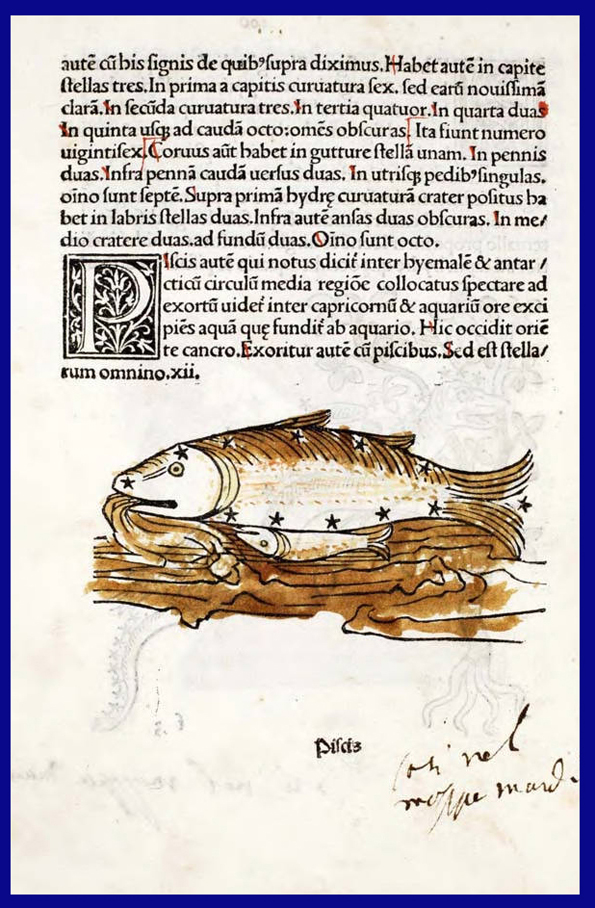 autē cū bis signis de quibꝰsupra diximus.Habet autē in capite
stellas tres.In prima a capitis curuatura sex. sed earū nouissimā
clarā.In secūda curuatura tres.In tertia quatuor.In quarta duas
In quinta usqꝫ ad caudā octo:omēs obscuras. Ita fiunt numero
uigintisex.Coruus aūt habet in gutture stellā unam. In pennis
duas.Infra pennā caudā uersus duas. In utrisqꝫ pedibꝰsingulas.
oīno sunt septē.Supra primā hydrę curuaturā crater positus ha
bet in labris stellas duas.Infra autē ansas duas obscuras. In me/
dio cratere duas.ad fundū duas.Oīno sunt octo.
PIscis autē qui notus dicit̃ inter hyemalē & antar /
cticū circulū media regiōe collocatus spectare ad
exortū uidet̃ inter capricornū & aquariū ore exci
piēs aquā quę fundit̃ ab aquario. Hic occidit oriē
te cancro.Exoritur autē cū piscibus.Sed est stella/
rum omnino.xii.
Piscis